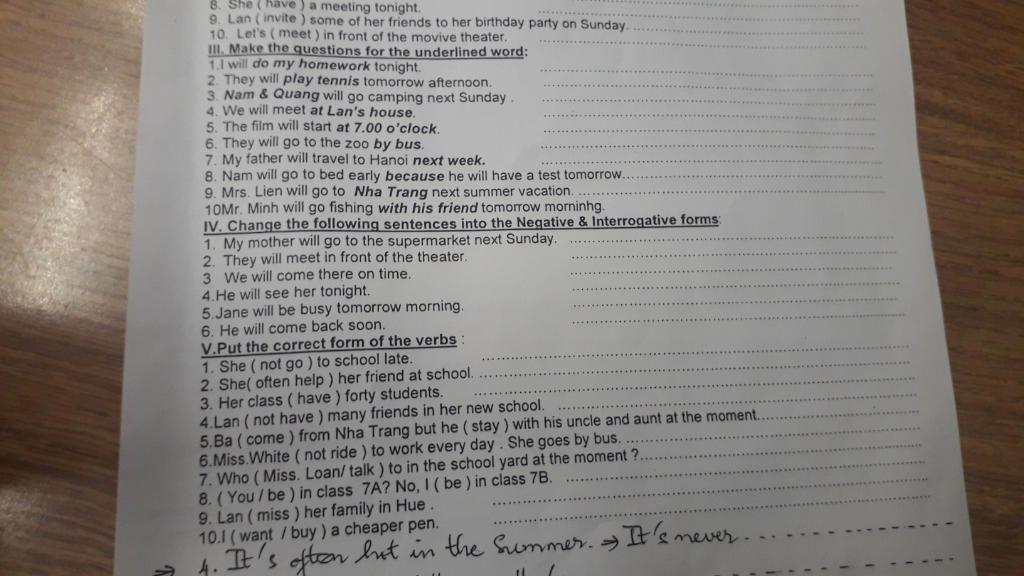 8. She ( have ) a meeting tonight.
9. Lan ( invite ) some of her friends to her birthday party on Sunday. ........
10. Let's ( meet ) in front of the movive theater. ........
III. Make the questions for the underlined word:
1.I will do my homework tonight. ........
2. They will play tennis tomorrow afternoon. ........
3. Nam & Quang will go camping next Sunday . ........
4. We will meet at Lan's house. ........
5. The film will start at 7.00 o'clock. ........
6. They will go to the zoo by bus. ........
7. My father will travel to Hanoi next week. ........
8. Nam will go to bed early because he will have a test tomorrow........
9. Mrs. Lien will go to Nha Trang next summer vacation. ........
10Mr. Minh will go fishing with his friend tomorrow morninhg.
IV. Change the following sentences into the Negative & Interrogative forms:
1. My mother will go to the supermarket next Sunday. ........
2. They will meet in front of the theater. ........
3 We will come there on time. ........
4.He will see her tonight. ........
5.Jane will be busy tomorrow morning. ........
6. He will come back soon. ........
V.Put the correct form of the verbs :
1. She ( not go ) to school late. ........
2. She( often help ) her friend at school. ........
3. Her class ( have ) forty students. ........
4.Lan ( not have ) many friends in her new school. ........
5.Ba ( come ) from Nha Trang but he ( stay ) with his uncle and aunt at the moment........
6.Miss.White ( not ride ) to work every day . She goes by bus. ........
7. Who ( Miss. Loan/ talk ) to in the school yard at the moment ?........
8. ( You / be ) in class 7A? No, I ( be ) in class 7B. ........
9. Lan ( miss ) her family in Hue . ........
10.I ( want / buy ) a cheaper pen. ........
→ 4. It's often hot in the Summer. → It's never ........